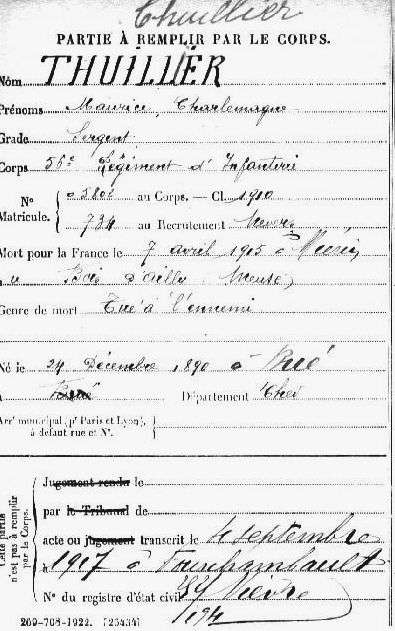 Thuillier
PARTIE À REMPLIR PAR LE CORPS.
Nom THUILLIER
Prénoms Maurice, Charlemagne
Grade Sergent
Corps 56e Régiment d'Infanterie
N° Matricule. { 05806 au Corps. — Cl. 1910
734 au Recrutement Nevers
Mort pour la France le 7 avril 1915 à
Bois d'ailly Meuse
Genre de mort Tué à l'ennemi
Né le 24 Décembre 1890 à
à Département Cher
Arrt municipal (pr Paris et Lyon), à défaut rue et N°. {
Cette partie n'est pas à remplir par le Corps.
Jugement rendu le
par le Tribunal de
acte ou jugement transcrit le 4 septembre
1917 à Fourchambault
N° du registre d'état civil Nièvre
209-708-1922. [25434]